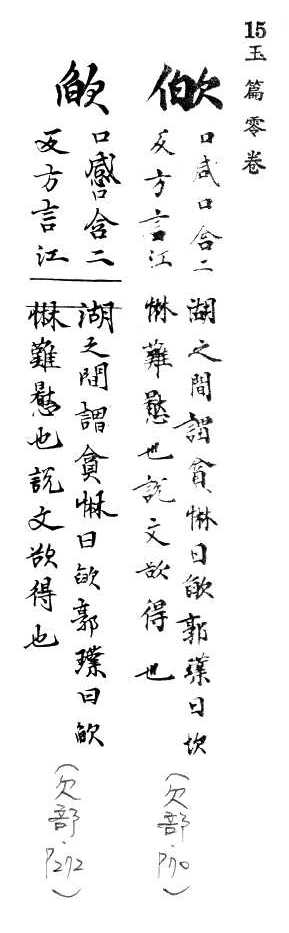 15玉篇零卷
欿
口咸口含二
反方言江
湖之間謂貪惏曰欿郭璞曰坎
惏難也說文欲得也
(欠部.P70)
欿
口感口含二
反方言江
湖之間謂貪惏曰欿郭璞曰欿
惏難也說文欲得也
(欠部.P272)